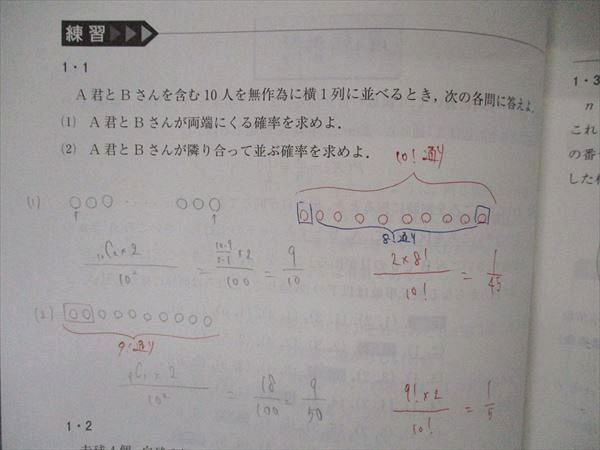 練習
1・1
A君とBさんを含む10人を無作為に横1列に並べるとき，次の各問に答えよ．
(1) A君とBさんが両端にくる確率を求めよ．
(2) A君とBさんが隣り合って並ぶ確率を求めよ．
10!通り
(1)
8!通り
₁₀C₂×2/10² = 10·9/2·1 ×2/100 = 9/10
2×8!/10! = 1/45
(2)
9!通り
₉C₁×2/10² = 18/100 = 9/50
9!×2/10! = 1/5
1・2
1・3
n
これ
の番